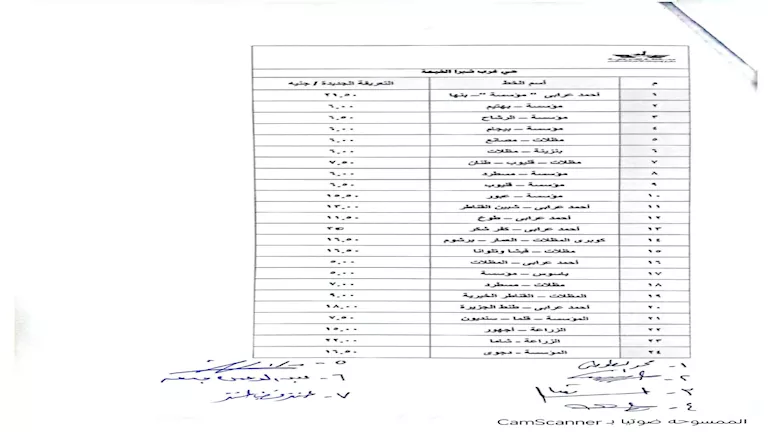 حي غرب شبرا الخيمة
م أسم الخط التعريفة الجديدة / جنيه
١ أحمد عرابى " مؤسسة " – بنها ٢١,٥٠
٢ مؤسسة – بهتيم ٦,٠٠
٣ مؤسسة – الرشاح ٦,٥٠
٤ مؤسسة – بيجام ٦,٠٠
٥ مظلات – مصانع ٦,٠٠
٦ بنزينة – مظلات ٦,٠٠
٧ مظلات – قليوب – طنان ٧,٥٠
٨ مؤسسة – مسطرد ٦,٠٠
٩ مؤسسة – قليوب ٦,٥٠
١٠ مؤسسة – عبور ١٥,٥٠
١١ أحمد عرابى – شبين القناطر ١٣,٠٠
١٢ أحمد عرابى – طوخ ١١,٥٠
١٣ أحمد عرابى – كفر شكر
١٤ كوبرى المظلات – الصار – برشوم ١٦,٥٠
١٥ مظلات – فيشا وتلوانا ١٦,٥٠
١٦ أحمد عرابى – المظلات ٥,٠٠
١٧ باسوس – مؤسسة ٥,٠٠
١٨ مظلات – مسطرد ٧,٠٠
١٩ المظلات – القناطر الخيرية ٩,٠٠
٢٠ أحمد عرابى – طنط الجزيرة ١٨,٠٠
٢١ المؤسسة – قلما – سنديون ٧,٥٠
٢٢ الزراعة – أجهور ١٥,٠٠
٢٣ الزراعة – شاما ٢٢,٠٠
٢٤ المؤسسة – دجوى ١٦,٥٠
١ -
٢ -
٣ -
٤ -
٥ -
٦ -
٧ -
الممسوحة ضوئيا بـ CamScanner